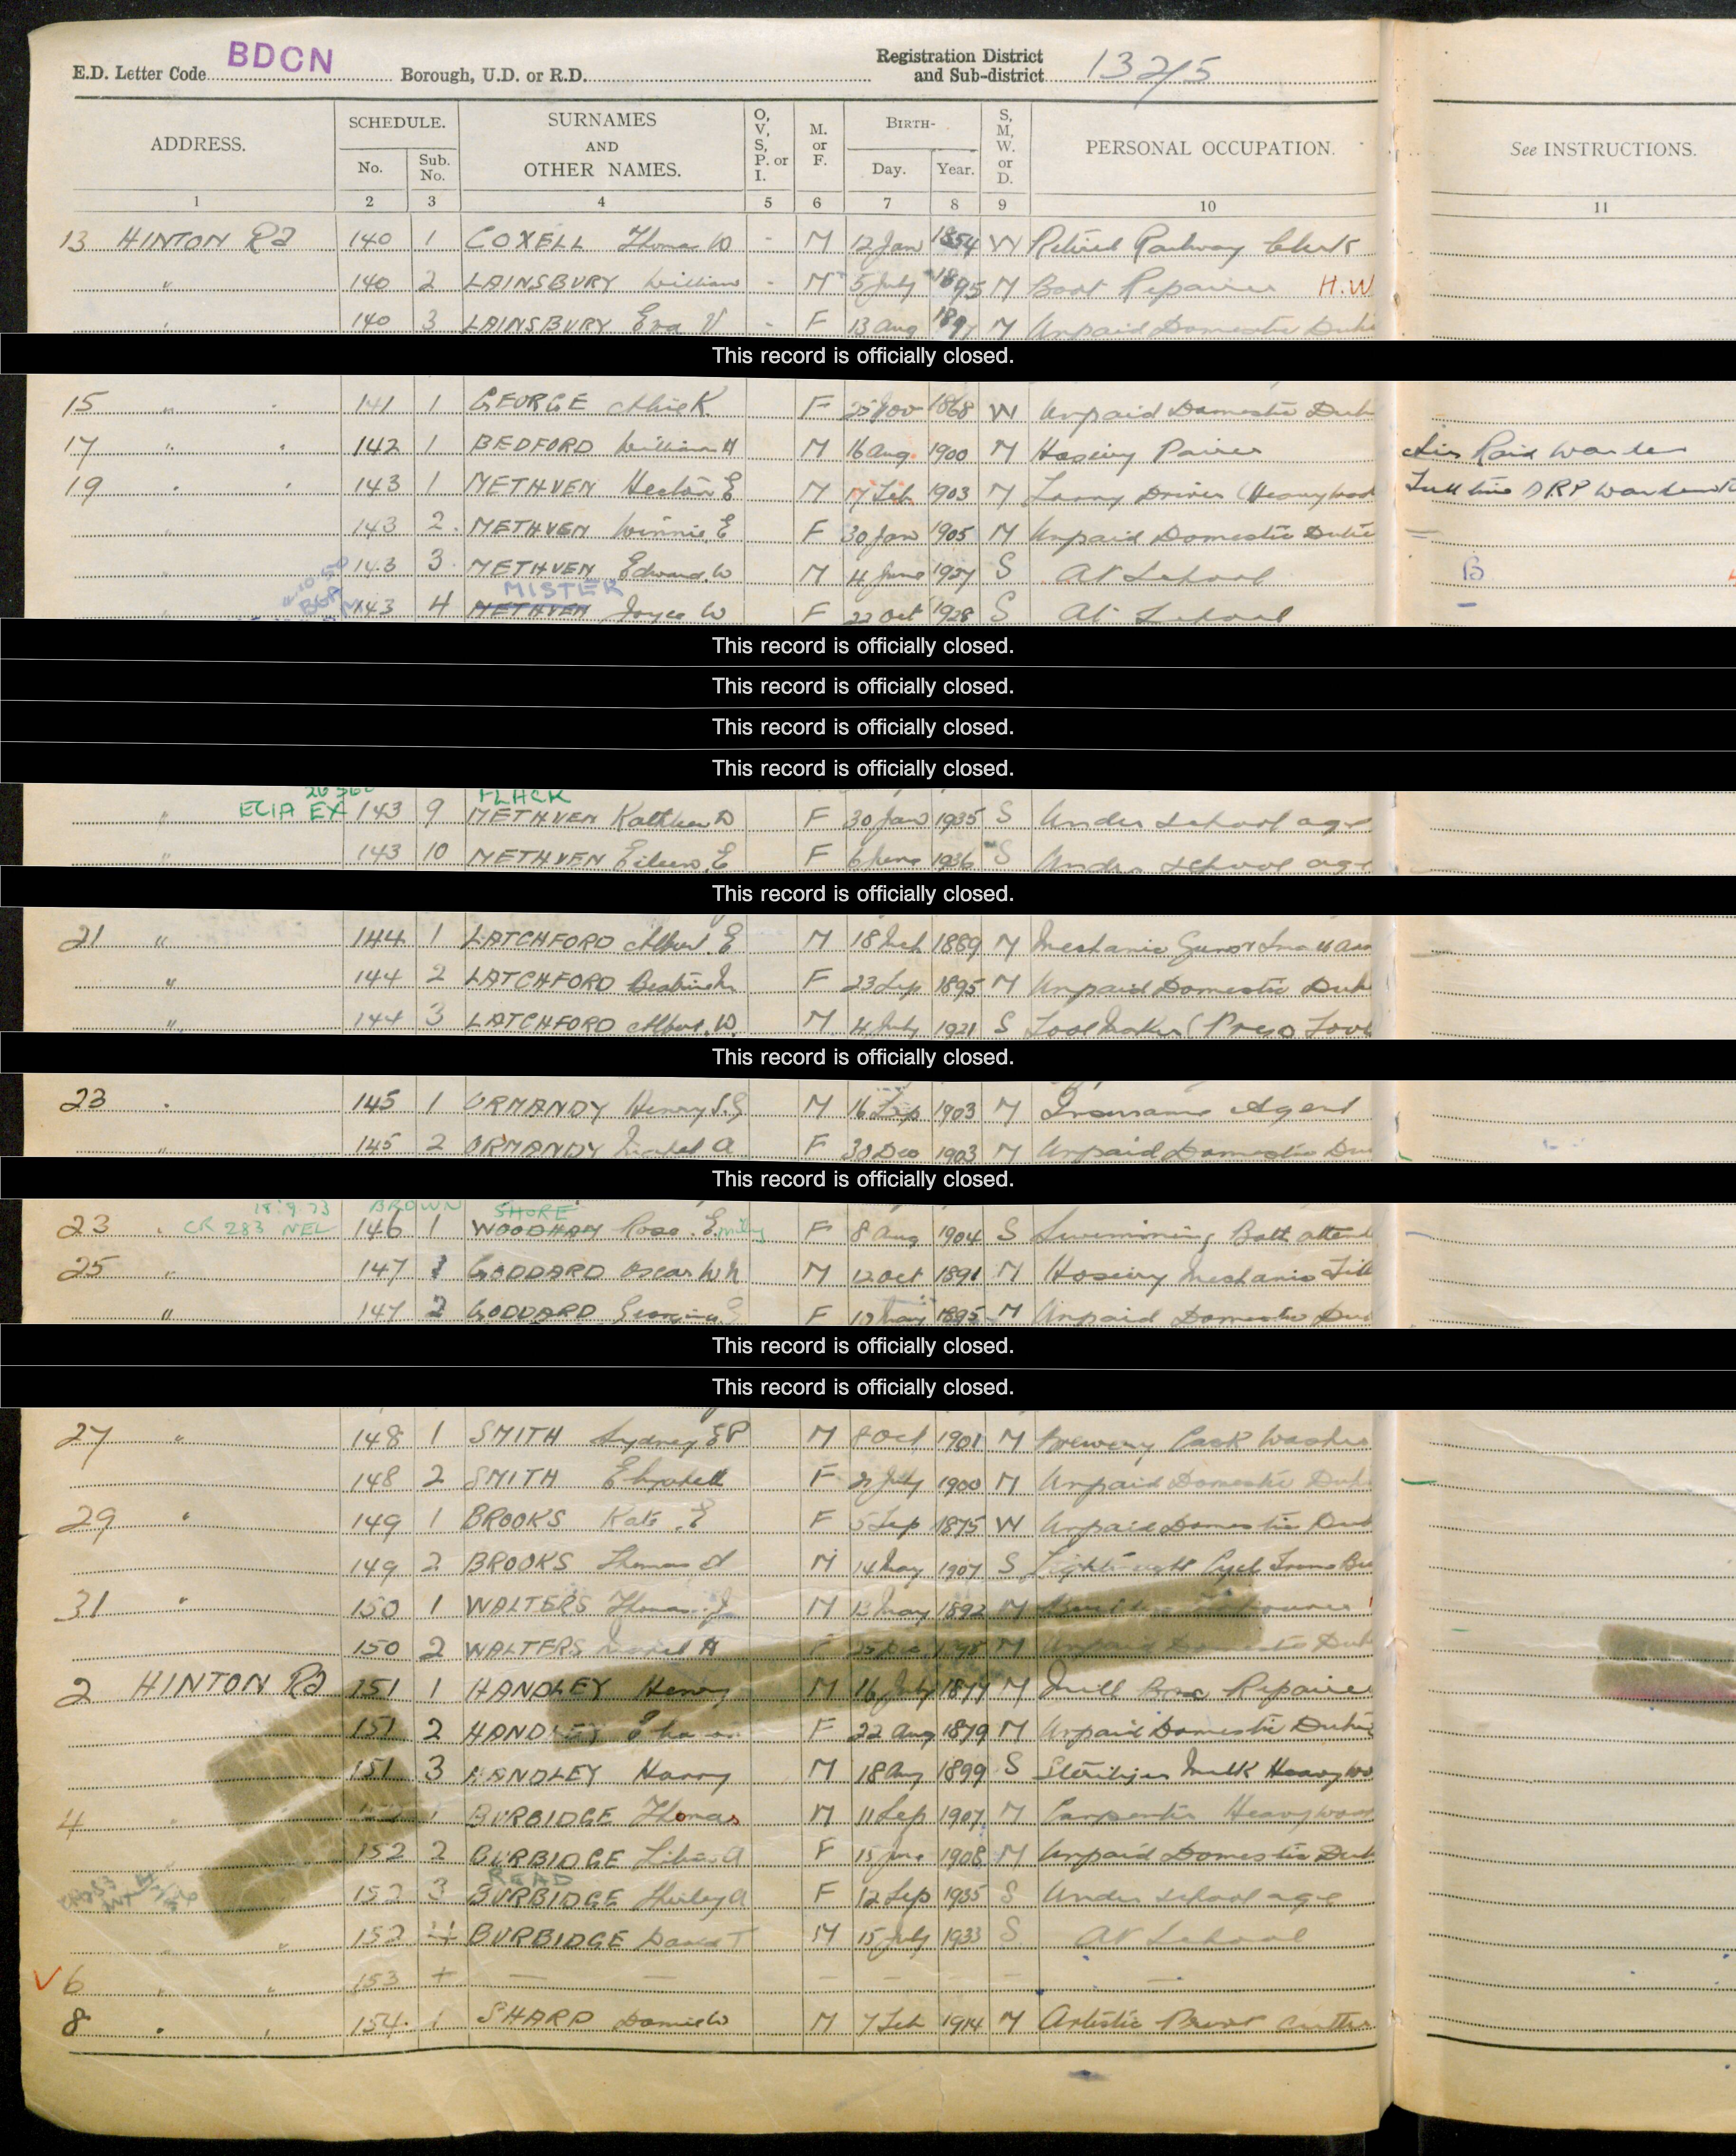 E.D. Letter Code BDCN Borough, U.D. or R.D. Registration District and Sub-district 132/5
ADDRESS. SCHEDULE. No. Sub. No. SURNAMES AND OTHER NAMES. O, V, S, P. or I. M. or F. BIRTH- Day. Year. S, M, W. or D. PERSONAL OCCUPATION. See INSTRUCTIONS.
1 2 3 4 5 6 7 8 9 10 11
13 HINTON Rd 140 1 COXELL Thomas W - M 12 Jan 1854 W Retired Railway Clerk
" 140 2 LAINSBURY William - M 5 July 1895 M Boot Repairer H.W
" 140 3 LAINSBURY Eva V - F 13 Aug 1897 M Unpaid Domestic Duti
This record is officially closed.
15 " " 141 1 GEORGE K F 25 Nov 1868 W Unpaid Domestic Duti
17 " " 142 1 BEDFORD William H M 16 Aug 1900 M Hosiery Pairer Air Raid Warden
19 " " 143 1 METHVEN Hector E M 17 Feb 1903 M Lorry Driver (Heavy Full time ARP Warden
143 2 METHVEN Winnie E F 30 Jan 1905 M Unpaid Domestic Dutie
" 143 3 METHVEN Edward W M 4 June 1927 S At School B
MISTER
143 4 METHVEN Joyce W F 22 Oct 1928 S At School
This record is officially closed.
This record is officially closed.
This record is officially closed.
This record is officially closed.
FLACK
" ECIA EX 143 9 METHVEN Kathleen D F 30 Jan 1935 S Under school age
" 143 10 METHVEN Eileen E F 6 June 1936 S Under school age
This record is officially closed.
21 " 144 1 LATCHFORD Albert E M 18 Mch 1889 M Mechanic Guns & Small Arm
" 144 2 LATCHFORD Beatrice F 23 Sep 1895 M Unpaid Domestic Duti
" 144 3 LATCHFORD Albert W M 4 July 1921 S Tool Maker (Press Tool
This record is officially closed.
23 " 145 1 ORMANDY Henry S.G M 16 Sep 1903 M Insurance Agent
" 145 2 ORMANDY Mabel A F 30 Dec 1903 M Unpaid Domestic Du
This record is officially closed.
18.9.73 BROWN SHORE
23 " CR 283 NEL 146 1 WOODHAM Rose Emily F 8 Aug 1904 S Swimming Bath attend
25 " 147 1 GODDARD Oscar W N M 12 Oct 1891 M Hosiery Mechanic
" 147 2 GODDARD Georgina F 1895 M Unpaid Domestic Du
This record is officially closed.
This record is officially closed.
27 " 148 1 SMITH Sydney E P M 8 Oct 1901 M Brewery Cask Washer
148 2 SMITH Elizabeth F 21 July 1900 M Unpaid Domestic Duti
29 " 149 1 BROOKS Kate E F 5 Sep 1875 W Unpaid Domestic Duti
149 2 BROOKS Thomas M 14 May 1907 S Cycle Frame
31 " 150 1 WALTERS Thomas J M 13 May 1892 M
150 2 WALTERS H F 25 Dec M Unpaid Domestic Duti
2 HINTON Rd 151 1 HANDLEY Henry M 16 July 1874 M Repairer
151 2 HANDLEY F 22 Aug 1879 M Unpaid Domestic Dutie
151 3 HANDLEY Harry M 18 Aug 1899 S Steriliser Milk Heavy wo
4 " 1 BURBIDGE Thomas M 11 Sep 1907 M Carpenter Heavy wor
152 2 BURBIDGE Lilian A F 15 June 1908 M Unpaid Domestic Duti
READ
152 3 BURBIDGE Shirley A F 12 Sep 1935 S Under school age
" " 152 4 BURBIDGE David T M 15 July 1933 S At School
✓ 6 " " 153 + — — — — — — —
8 " " 154 1 SHARD W M 7 Feb 1914 M Artistic